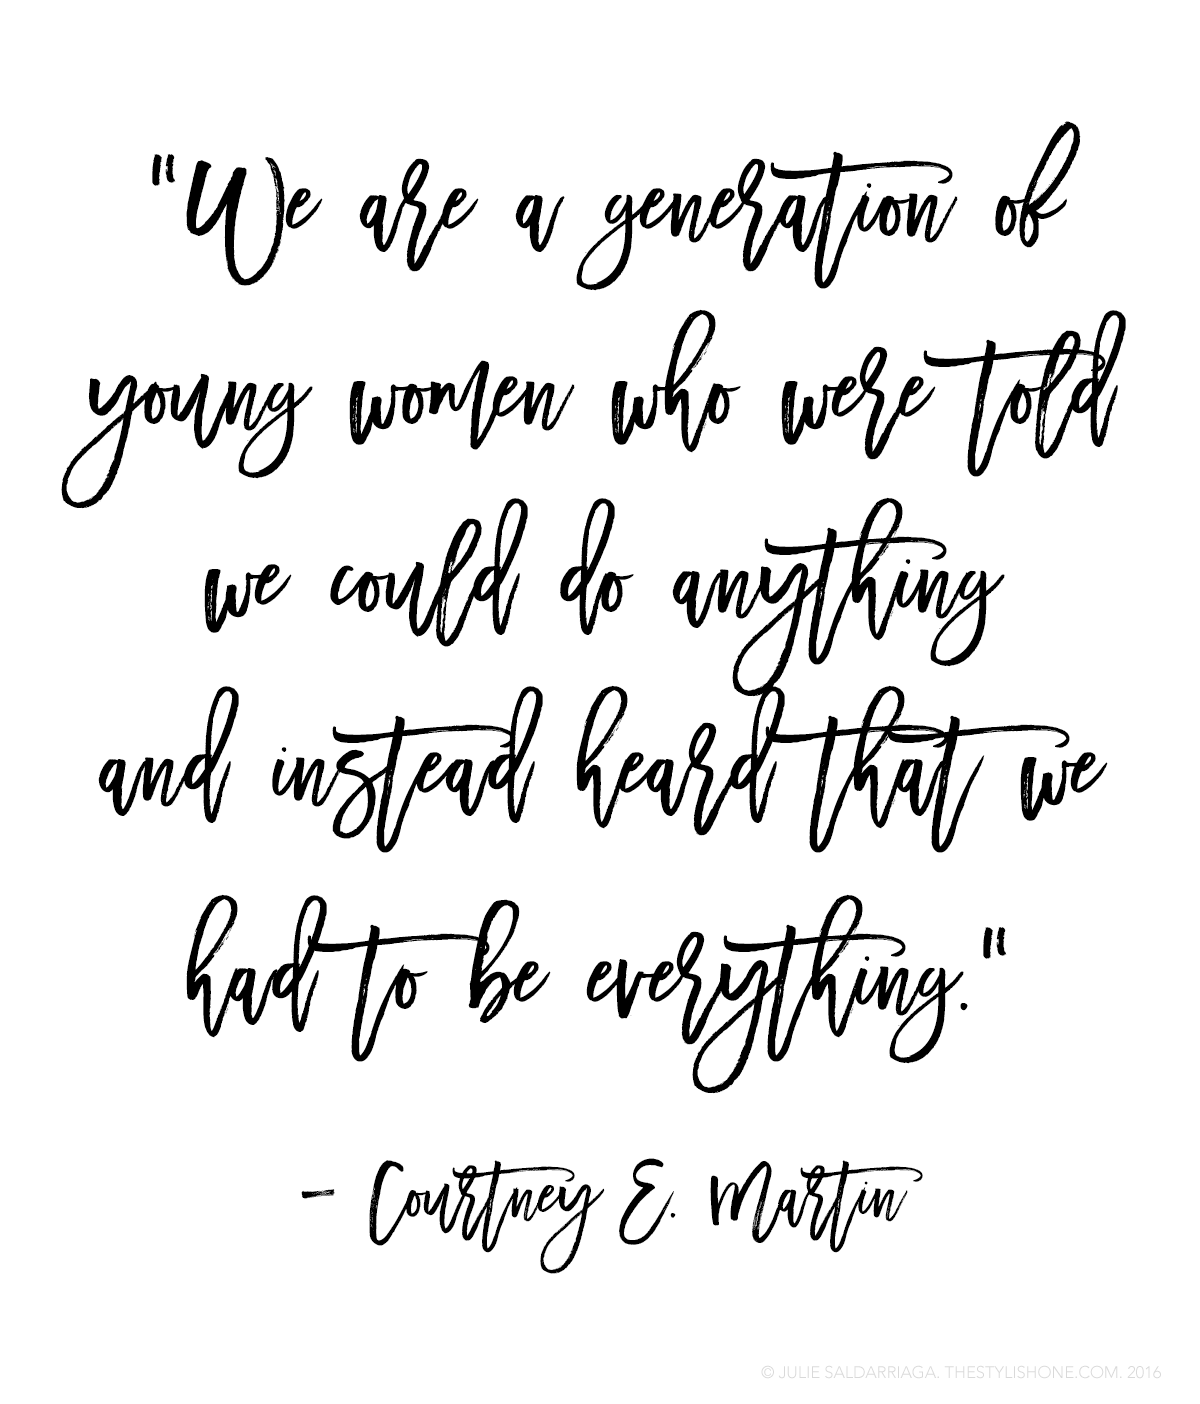 "We are a generation of
young women who were told
we could do anything
and instead heard that we
had to be everything."
- Courtney E. Martin
© JULIE SALDARRIAGA. THESTYLISHONE.COM. 2016